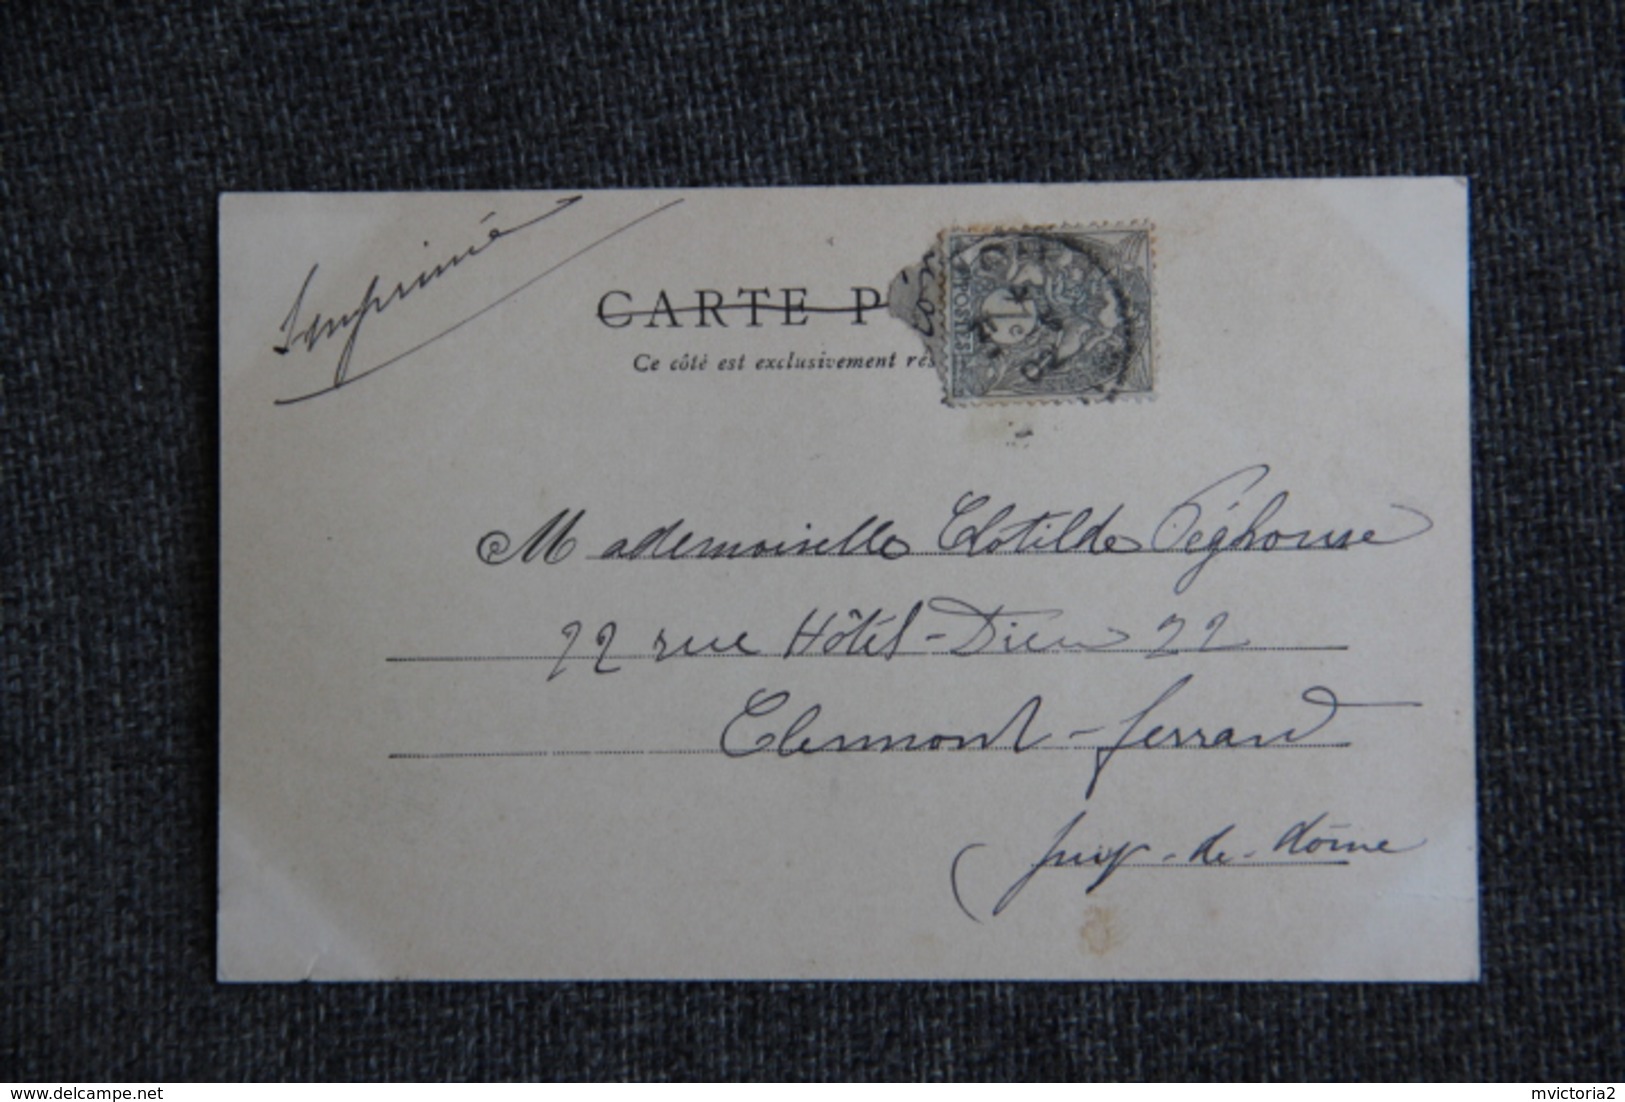 Imprimé
CARTE P
Ce côté est exclusivement rés
POSTES
1c
02
Mademoiselle Clotilde Péghouse
22 rue Hôtel-Dieu 22
Clermont-ferrand
(puy-de-dôme
delcampe.net
mvictoria2